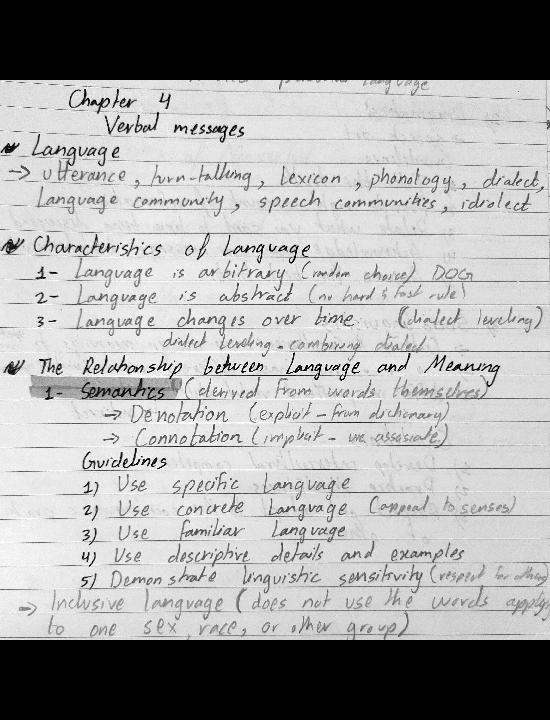 Language
Chapter 4
Verbal messages
Language
→ utterance, turn-talking, Lexicon, phonology, dialect,
Language community, speech communities, idiolect
Characteristics of Language
1- Language is arbitrary (random choice) DOG
2- Language is abstract (no hard & fast rule)
3- Language changes over time (dialect leveling)
dialect leveling - combining dialect
The Relationship between Language and Meaning
1- Semantics (derived from words themselves)
→ Denotation (explicit - from dictionary)
→ Connotation (implicit - we assosiate)
Guidelines
1) Use specific Language
2) Use concrete Language (appeal to senses)
3) Use familiar Language
4) Use descriptive details and examples
5) Demonstrate linguistic sensitivity (respect for others)
→ Inclusive language (does not use the words apply
to one sex, race, or other group)